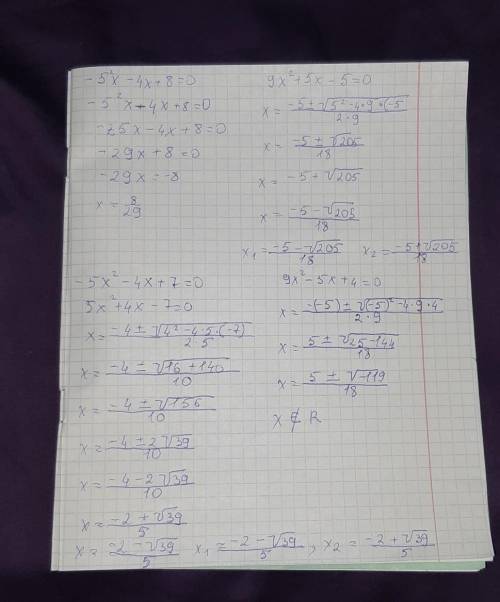 -5²x -4x+8=0
-5²x-4x+8=0
-25x-4x+8=0
-29x+8=0
-29x=-8
x=8/29
9x²+5x-5=0
x=(-5±√(5²-4·9·(-5)))/(2·9)
x=(-5±√205)/18
x=-5+√205
x=(-5-√205)/18
x₁=(-5-√205)/18 x₂=(-5+√205)/18
-5x²-4x+7=0
5x²+4x-7=0
x=(-4±√(4²-4·5·(-7)))/(2·5)
x=(-4±√(16+140))/10
x=(-4±√156)/10
x=(-4±2√39)/10
x=(-4-2√39)/10
x=(-2+√39)/5
x=(-2-√39)/5 x₁=(-2-√39)/5, x₂=(-2+√39)/5
9x²-5x+4=0
x=(-(-5)±√((-5)²-4·9·4))/(2·9)
x=(5±√(25-144))/18
x=(5±√-119)/18
x∉R